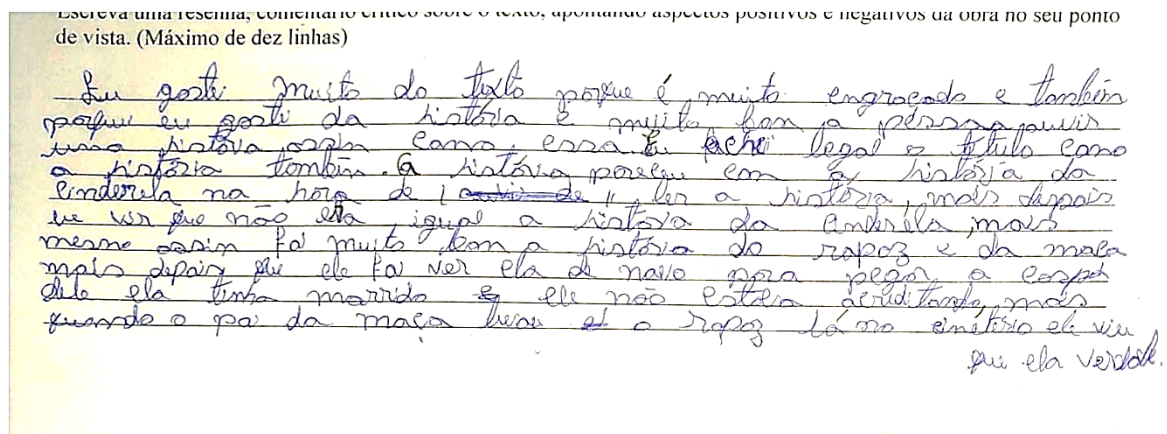 Escreva uma resenha, comentário crítico sobre o texto, apontando aspectos positivos e negativos da obra no seu ponto
de vista. (Máximo de dez linhas)
Eu gosti muito do texto porque é muito engraçado e também
porque eu gosti da história e muito bom a pessoa ouvir
uma histova assim como essa Eu achei legal o título como
a história também. A história pareceu com a história da
Cinderela na hora de ler a história, mais depois
eu ver que não era igual a história da Cinderéla, mais
mesmo assim foi muito bom a história do rapoz e da moça
mais depois que ele foi ver ela de novo pora pegar a capa
dele ela tinha morrido e ele não estava acreditando, mais
quando o pai da moça levou o rapoz lá no cimitério ele viu
que era verdade.